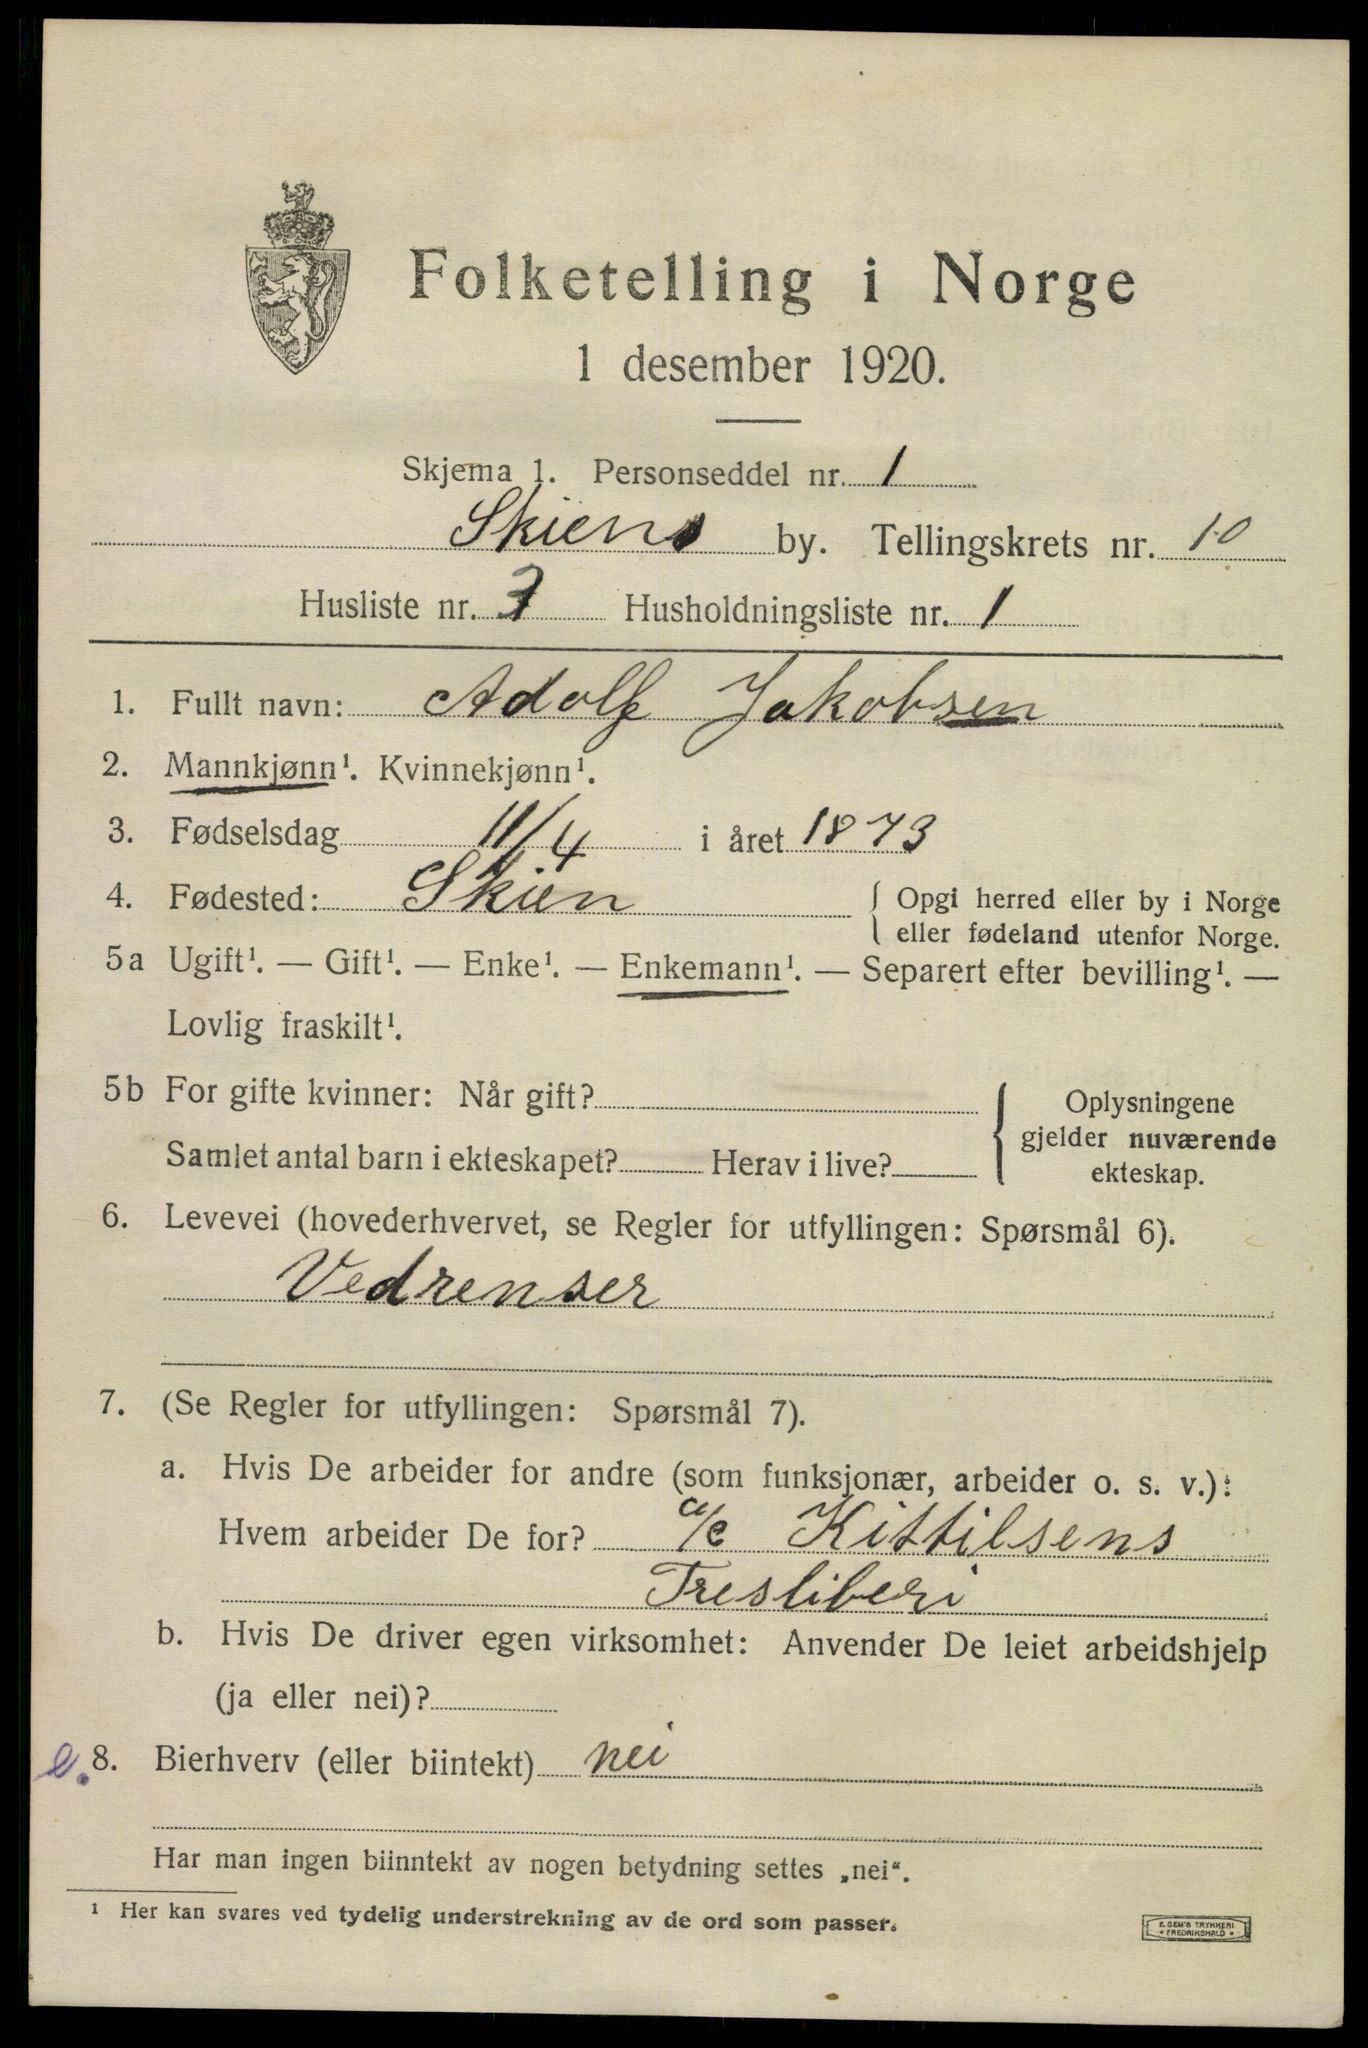 Folketelling i Norge
1 desember 1920.
Skjema 1. Personseddel nr. 1
Skiens by. Tellingskrets nr. 10
Husliste nr. Husholdningsliste nr. 1
1. Fullt navn: Adolf Jakobsen
2. Mannkjønn¹. Kvinnekjønn¹.
3. Fødselsdag 11/4 i året 1873
4. Fødested: Skien { Opgi herred eller by i Norge
eller fødeland utenfor Norge.
5a Ugift¹. — Gift¹. — Enke¹. — Enkemann¹. — Separert efter bevilling¹. —
Lovlig fraskilt¹.
5b For gifte kvinner: Når gift? { Oplysningene
gjelder nuværende
Samlet antal barn i ekteskapet? Herav i live? ekteskap.
6. Levevei (hovederhvervet, se Regler for utfyllingen: Spørsmål 6).
Vedrenser
7. (Se Regler for utfyllingen: Spørsmål 7).
a. Hvis De arbeider for andre (som funksjonær, arbeider o. s. v.):
Hvem arbeider De for? a/c Kittilsens
Tresliberi
b. Hvis De driver egen virksomhet: Anvender De leiet arbeidshjelp
(ja eller nei)?
e. 8. Bierhverv (eller biintekt) nei
Har man ingen biinntekt av nogen betydning settes „nei“.
¹ Her kan svares ved tydelig understrekning av de ord som passer.
E. SEM'S TRYKKERI
* FREDRIKSHALD *